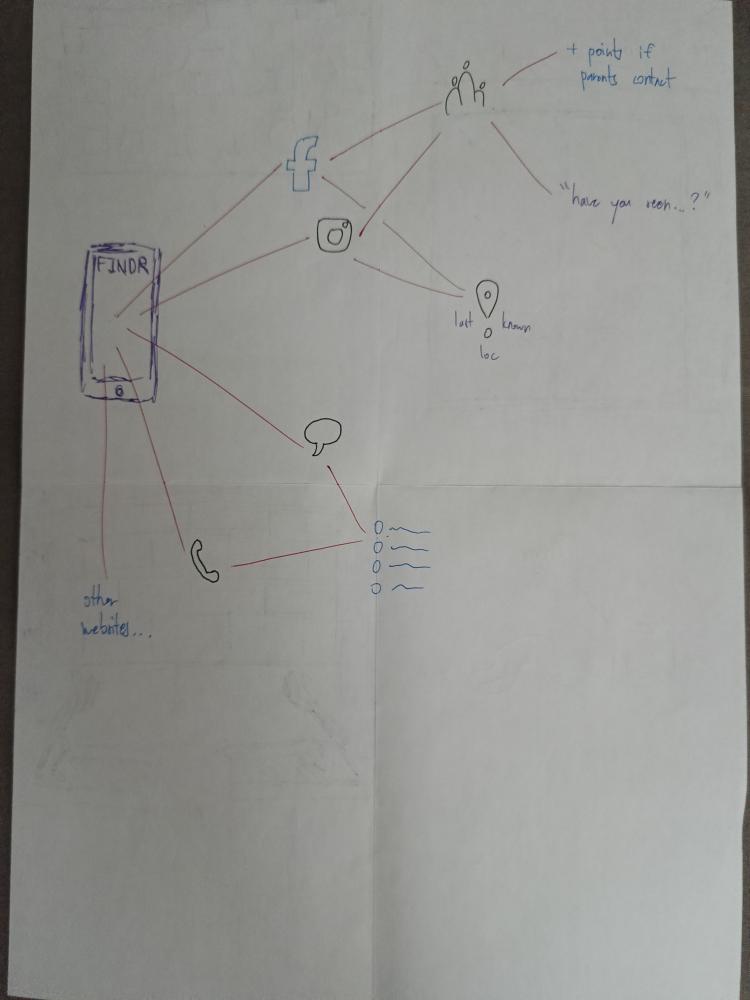 + points if
parents contact
"have you seen...?"
FINDR
last known
loc
other
websites...